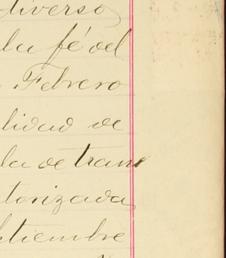 diverso
la fé del
Febrero
lidad de
la de trans
torizada
ptiembre